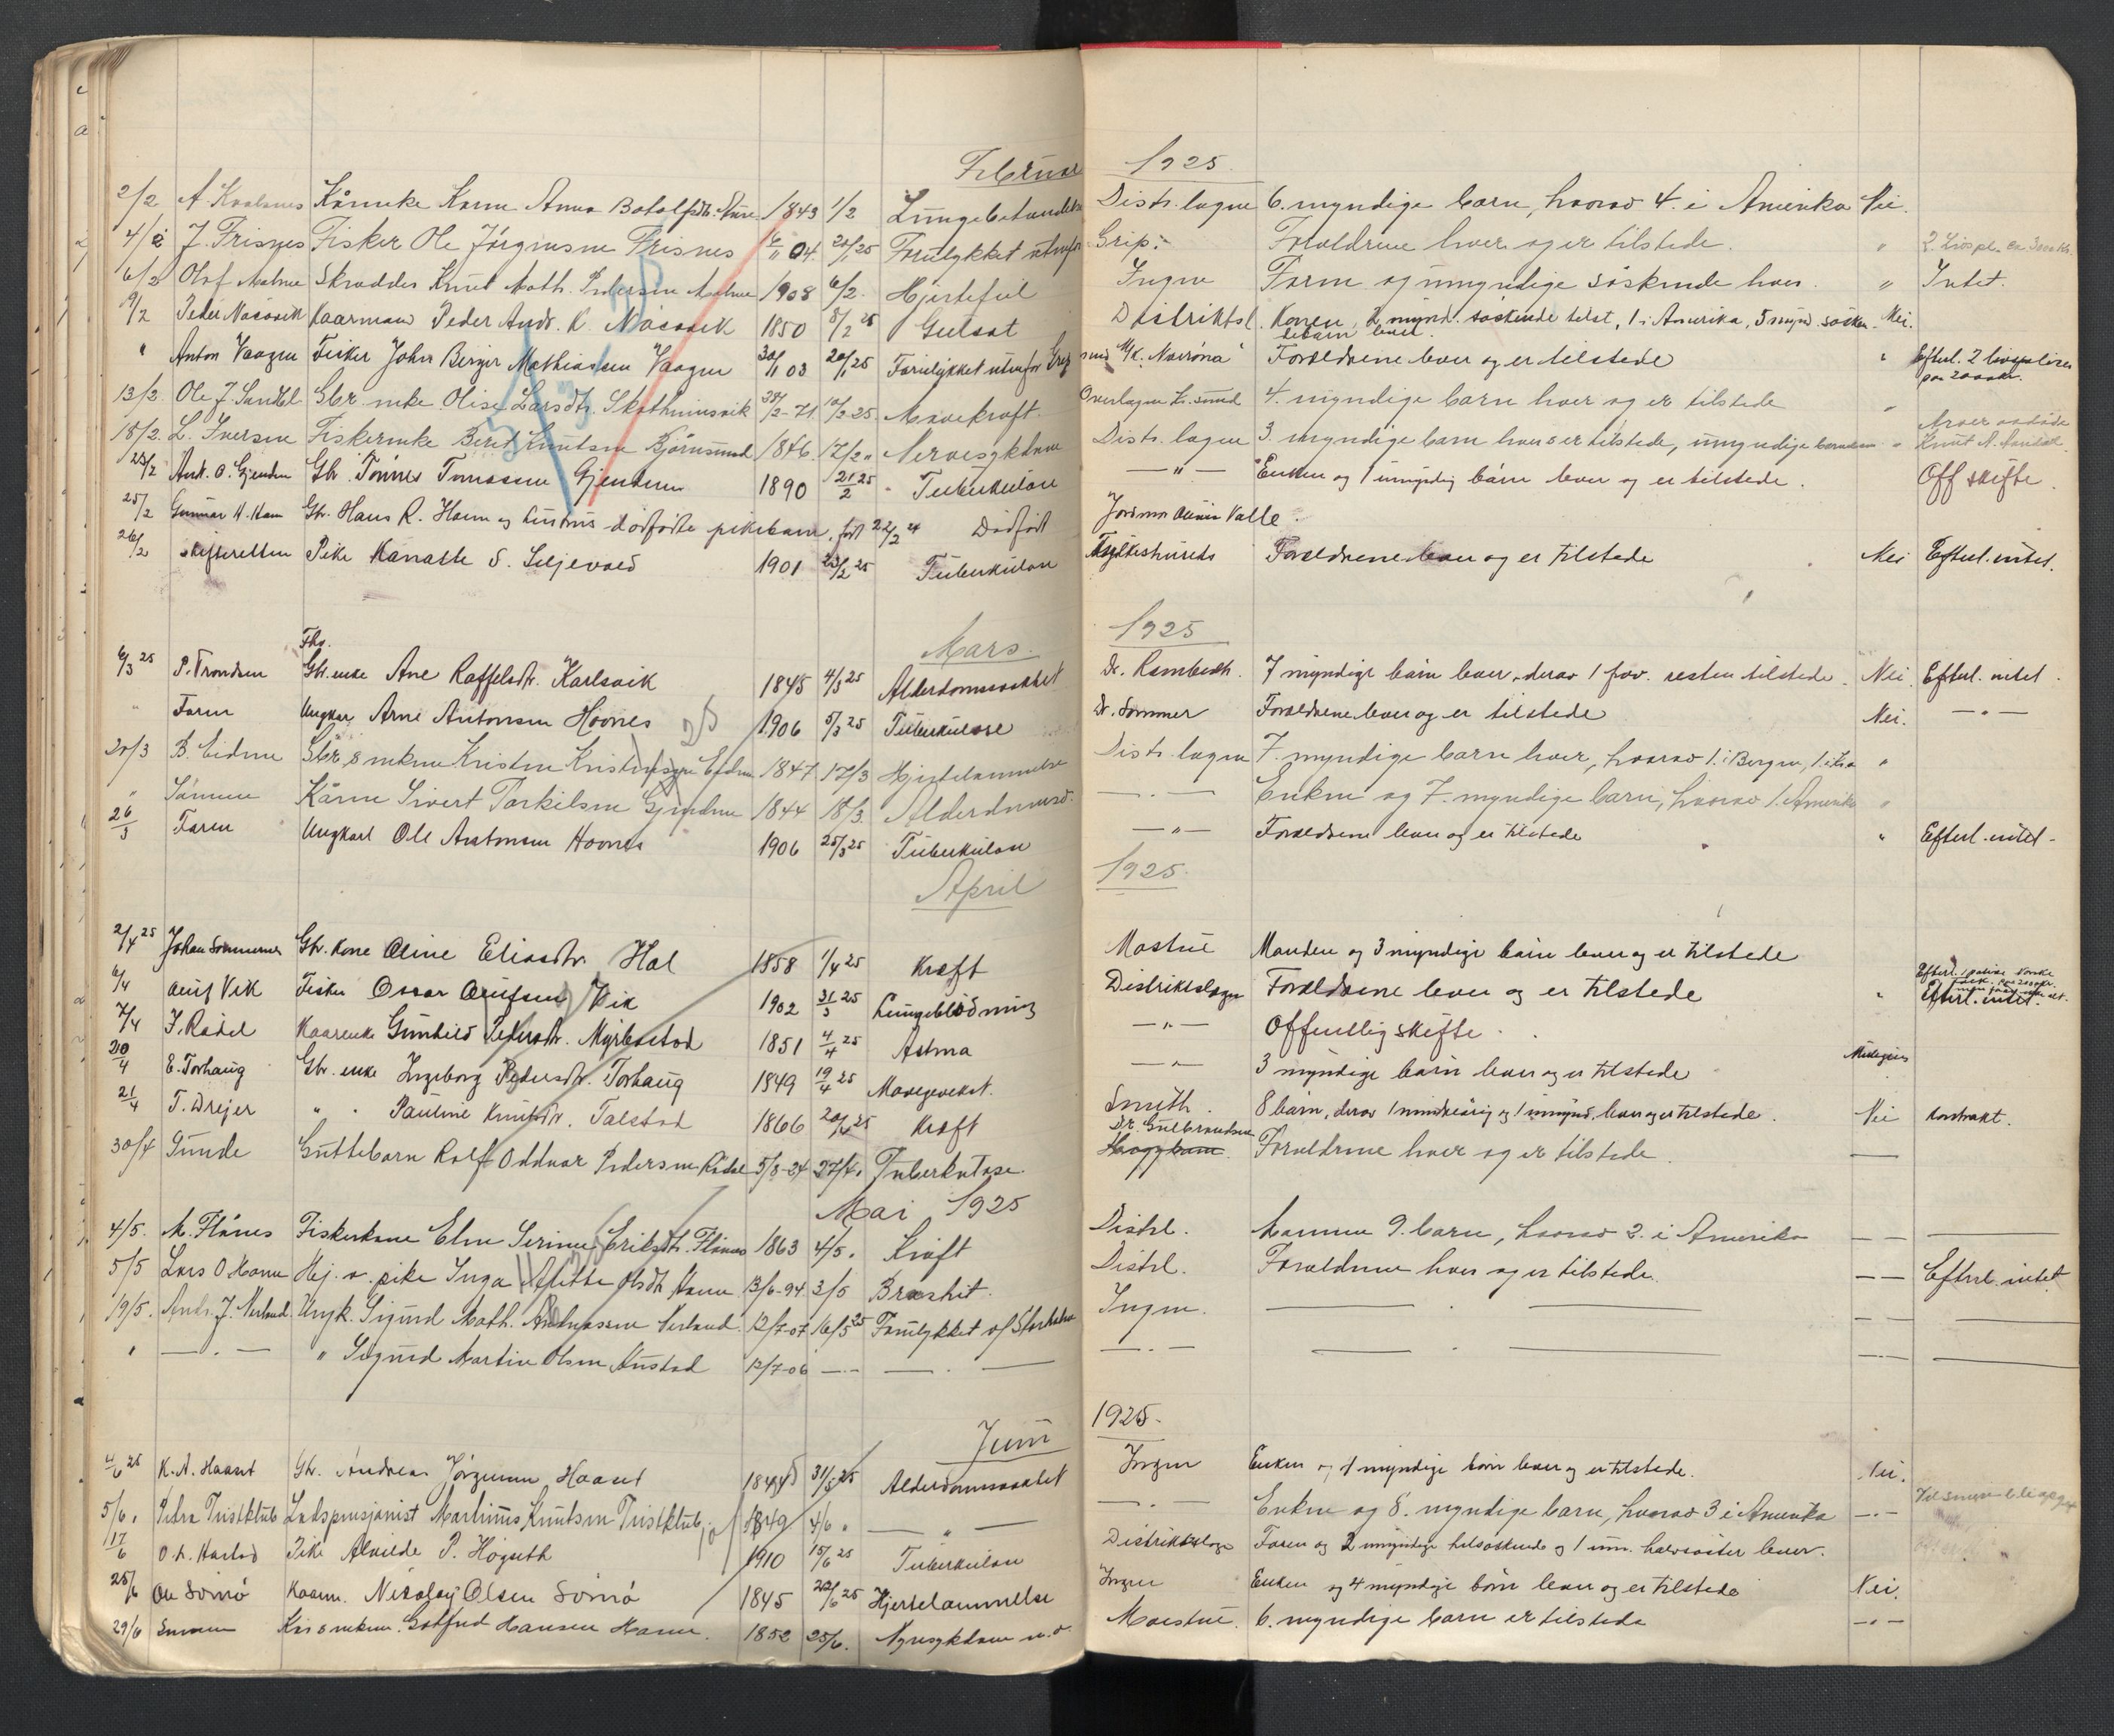 Februar 1925.
2/2 A Kvalsnes Kårmke Karen Anna Botolfsdtr. Aure 1843 1/2 Lungebetændelse Distr. lægen 6. myndige barn, hvorav 4. i Amerika Nei.
4/2 J. Frisnes Fisker Ole Jörgensen Frisnes 04. 20/1 25 Forulykket utenfor Grip. Forældrene lever og er tilstede. " 2. Livspl.
6/2 Olof Malmo Skrædder Knut Math. Pedersen Malmo 1908 6/2. Hjertefeil Ingen Faren og umyndige söskende lever. " Intet.
9/2 Peder Näsvik Kaarmand Peder Andr. K. Näsvik 1850 8/2 25 Gulsot Distriktsl. Konen, 2 mynd. söskende tilst, 1 i Amerika, 5 mynd. sösken- Nei.
debarn lever.
" Anton Vaagen Fisker Johan Berger Mathiassen Vaagen 03 20/1 25 Forulykket utenfor Grip med M/K. "Norröna" Forældrene lever og er tilstede " Efterl. 2 livspoliser
paa 2000 kr.
13/2 Ole J. Sandbl Gbr. enke Olise Larsdtr. Skothamsvik 2-71. 10/2-25. Mavekræft. Overlægen Kr.sund 4. myndige barn lever og er tilstede "
18/2. L. Iversen Fiskerenke Berit Knutsen Björnsund 1846. 17/2 " Nervesykdom Distr. lægen 3. myndige barn lever o er tilstede, umyndige barnebarn " Knut N.
23/2 And. O. Gjenden Gbr. Tönnes Tomassen Gjendem 1890 21/2 25 Tuberkulose — " — Enken og 1 umyndig barn lever og er tilstede. Off skifte.
25/2 Gunnar H. Ham Gbr. Hans R. Hamn og hustrus dödfödte pikebarn, födt 22/2 24 Dödfödt Jordmor Valle.
26/2 skifteretten Pike Kanaste S. Siljevold 1901 23/2 25 Tuberkulose Fylkeshusets Forældrene lever og er tilstede Nei Efterl. intet.
Mars. 1925
Fhv.
6/3 25 P. Trondsen Gbr. enke Ane Raffelsdtr. Karlsvik 1845 4/3 25 Alderdomssvakhet Dr. Rambech. 7 myndige barn lever, derav 1 frav. resten tilstede. Nei. Efterl. intet.
" Faren Ungkar Arne Antonsen Hovnes 1906 5/3 25 Tuberkulose Dr. Sommer Forældrene lever og er tilstede Nei. — " —
20/3 B. Eidem 1847 17/3 Hjertelammelse Distr. lægen 7. myndige barn lever, hvorav 1. i Bergen, "
" Sönnen Kårm Sivert Torkilsen Gjendem 1844 18/3. Alderdomssv. — " — Enken og 7. myndige barn, hvorav 1. Amerika "
26/3 Faren Ungkarl Ole Antonsen Hovnes 1906 25/3 25 Tuberkulose — " — Forældrene lever og er tilstede " Efterl. intet.
April 1925.
2/4 25 Johan Sommernes Gbr. kone Oline Eliasdtr. Hol 1858 1/4 25 Kræft Mostue Manden og 3 myndige barn lever og er tilstede
6/4 Oluf Vik Fisker Oscar Olufsen Vik 1902 31/3 25 Lungeblödning Distriktslægen Forældrene lever og er tilstede " Efterl. intet.
7/4 J. Rådel Kaarenke Gunhild Pedersdtr. Myrbostad 1851 4/4 25 Astma — " — Offentlig skifte.
20/4 E. Torhaug Gbr. enke Ingeborg Pedersdtr. Torhaug 1849 19/4 25 Mavegevekst. — " — 3 myndige barn lever og er tilstede
21/4 T. Drejer " " Pauline Knutsdtr. Talstad 1866 20/4 25 Kræft Smith. 8 barn, derav 1 mindreårig og 1 umynd. lever og er tilstede. Nei kontrakt.
30/4 Gunde Guttebarn Rolf Oddvar Pedersen Rådal 5/8-24 27/4. Tuberkulose. Dr. Gulbrandsen Forældrene lever og er tilstede. —
Mai 1925
4/5. M. Flånes Fiskerkone Elen Serine Eriksdtr. Flånes 1863 4/5. Kræft Distrl. Mannen 9. barn, hvorav 2. i Amerika — —
5/5 Lars O Hamn Hej. v. pike Inga Alette Olsdtr Hamn 13/6-94 3/5 Brokhit. Distrl. Forældrene lever og er tilstede. — — Efterl. intet
19/5. Andr. J. Nerland Ungk. Sigurd Math. Andreassen Nerland. 12/7-07 16/5 25 Forulykket Ingen.
" — . — " Sigurd Martin Olsen Hustad 12/7-06 — . —
Juni 1925.
4/6 25 K. A. Haaset Gbr. Andreas Jörgensen Haaset 1844 31/5 25 Alderdomssvakhet Ingen Enken og 4 myndige barn lever og er tilstede. Nei.
5/6. Peder Tristklub Landspensjonist Martinus Knutsen Tristklub 1849 4/6 " — " — — . — Enken og 8. myndige barn, hvorav 3 i Amerika — " —
17/6 O. L. Harstad Pike Alvilde P. Högseth 1910 15/6 25 Tuberkulose Distriktslæge Faren og 2 umyndige helsöskende og 1 um. halvsöster lever.
25/6 Ole Sömö Kaarm. Nikolay Olsen Sömö 1845 22/6 25 Hjertelammelse Ingen Enken og 4 myndige barn lever og er tilstede Nei.
29/6 Hansen Hamn. 1852 25/6. Nyresykdom m. v. Mostue. 6. myndige barn er tilstede — " —